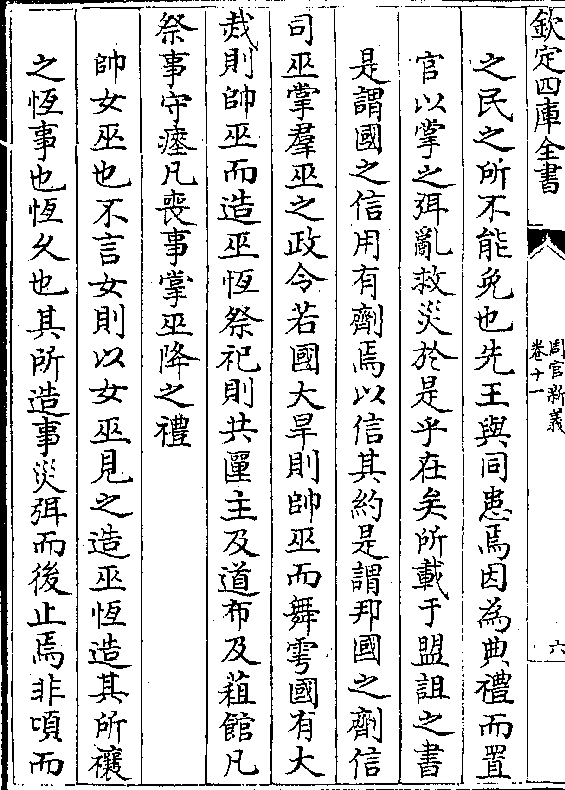 欽定四庫全書
周官新義
卷十一
六
之民之所不能免也先王與同患焉因為典禮而置
官以掌之弭亂救災於是乎在矣所載于盟詛之書
是謂國之信用有劑焉以信其約是謂邦國之劑信
司巫掌羣巫之政令若國大旱則帥巫而舞雩國有大
烖則帥巫而造巫恆祭祀則共匰主及道布及蒩館凡
祭事守瘞凡喪事掌巫降之禮
帥女巫也不言女則以女巫見之造巫恆造其所禳
之恆事也恆久也其所造事災弭而後止焉非頃而